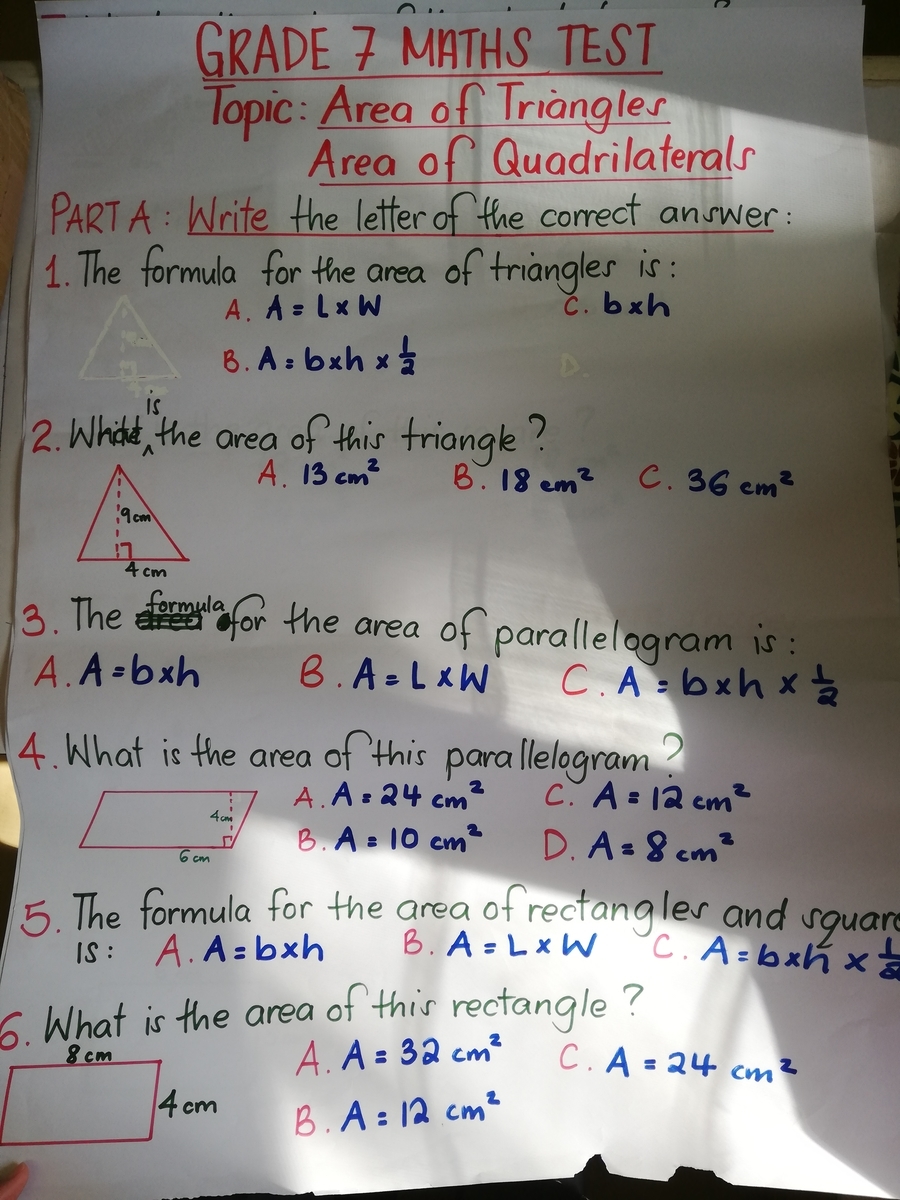 GRADE 7 MATHS TEST
Topic: Area of Triangles
Area of Quadrilaterals
PART A: Write the letter of the correct answer:
1. The formula for the area of triangles is:
A. A = L x W C. bxh
B. A = bxh x 1/2
D.
is
2. What ^ the area of this triangle?
A. 13 cm² B. 18 cm² C. 36 cm²
9cm
4 cm
formula
3. The for the area of parallelogram is:
A. A = bxh B. A = L x W C. A = bxh x 1/2
4. What is the area of this parallelogram?
A. A = 24 cm² C. A = 12 cm²
4cm
B. A = 10 cm² D. A = 8 cm²
6 cm
5. The formula for the area of rectangles and square
IS: A. A = bxh B. A = L x W C. A = bxh x 1/2
6. What is the area of this rectangle?
8 cm
A. A = 32 cm² C. A = 24 cm²
4 cm
B. A = 12 cm²